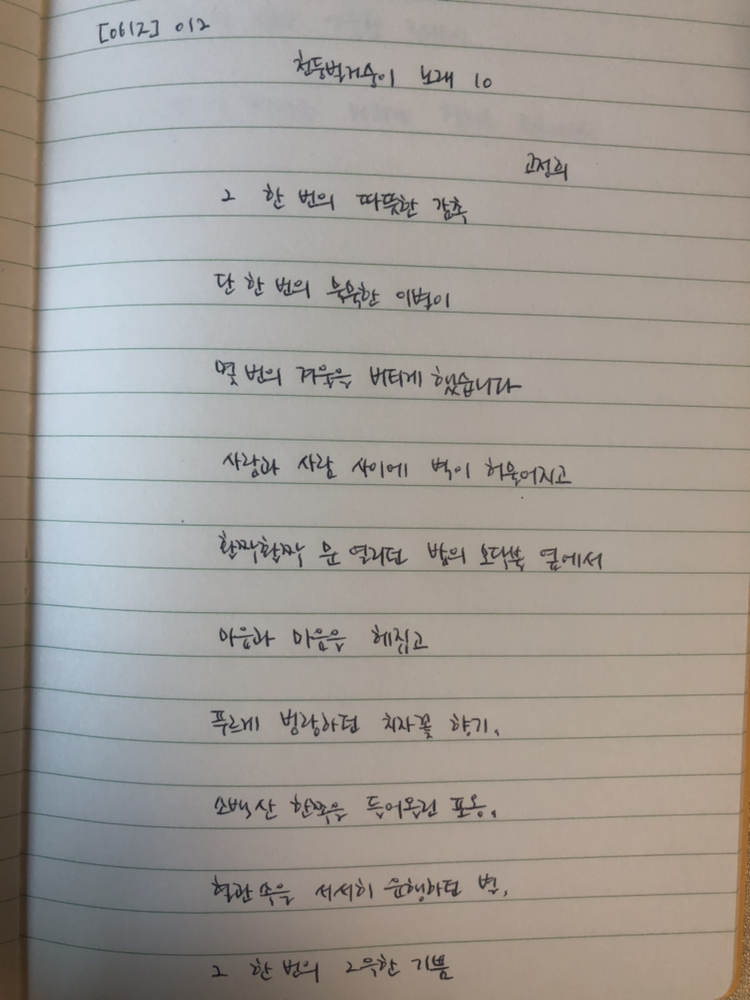 [0612] 012
천둥벌거숭이 노래 10
고정희
그 한 번의 따뜻한 감촉
단 한 번의 묵묵한 이별이
몇 번의 겨울을 버티게 했습니다
사람과 사람 사이에 벽이 허물어지고
활짝활짝 문 열리던 밤의 모닥불 옆에서
마음과 마음을 헤집고
푸르게 범람하던 치자꽃 향기,
소백산 한쪽을 들어올린 포옹,
혈관 속을 서서히 운행하던 별,
그 한 번의 그윽한 기쁨